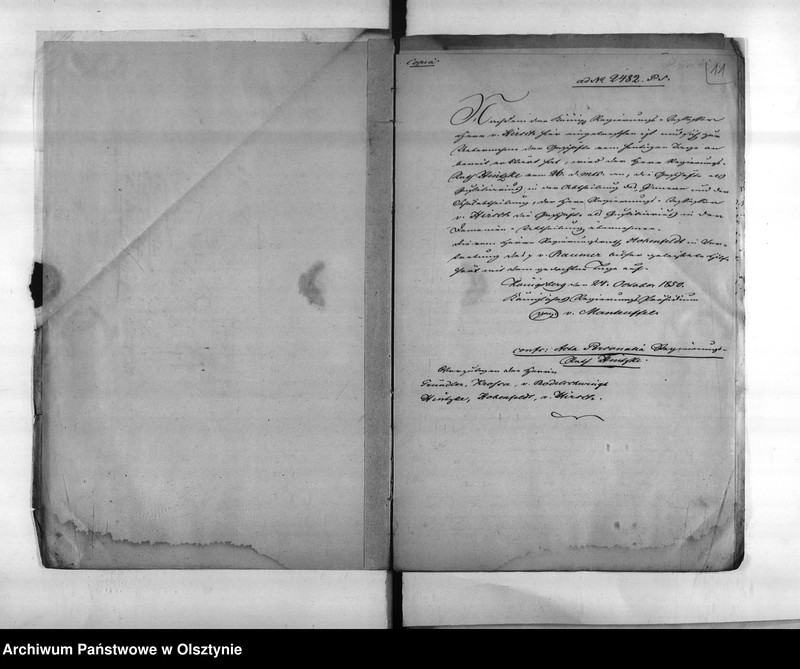 Copia.
11
ad No 2482. P. S.
Nachdem der Königl. Regierungs-Assessor
Herr v. Hirsch hier eingetroffen ist und sich zur
Uebernahme der Geschäfte vom heutigen Tage an
bereit erklärt hat, wird der Herr Regierungs-
Rath Hintzke vom d. Mts. an, die Geschäfte als
Justitiarius in der Abtheilung des Innern und der
Schulabtheilung, der Herr Regierungs-Assessor
v. Hirsch die Geschäfte als Justitiarius in der
Domainen-Abtheilung übernehmen.
Die vom Herrn Regierungsrath Hohenfeldt in Ver-
tretung des v. Raumer bisher geleistete Hülfe
hört mit dem gedachten Tage auf.
Königsberg den 24. October 1850.
Königliches Regierungs Praesidium
gez. v. Manteuffel.
confr: Acta Personalia Regierungs-
Rath Hintzke.
Vorzulegen den Herren
Gründler, v. Bodelschwingh
Hintzke, Hohenfeldt, v. Hirsch.
Archiwum Państwowe w Olsztynie